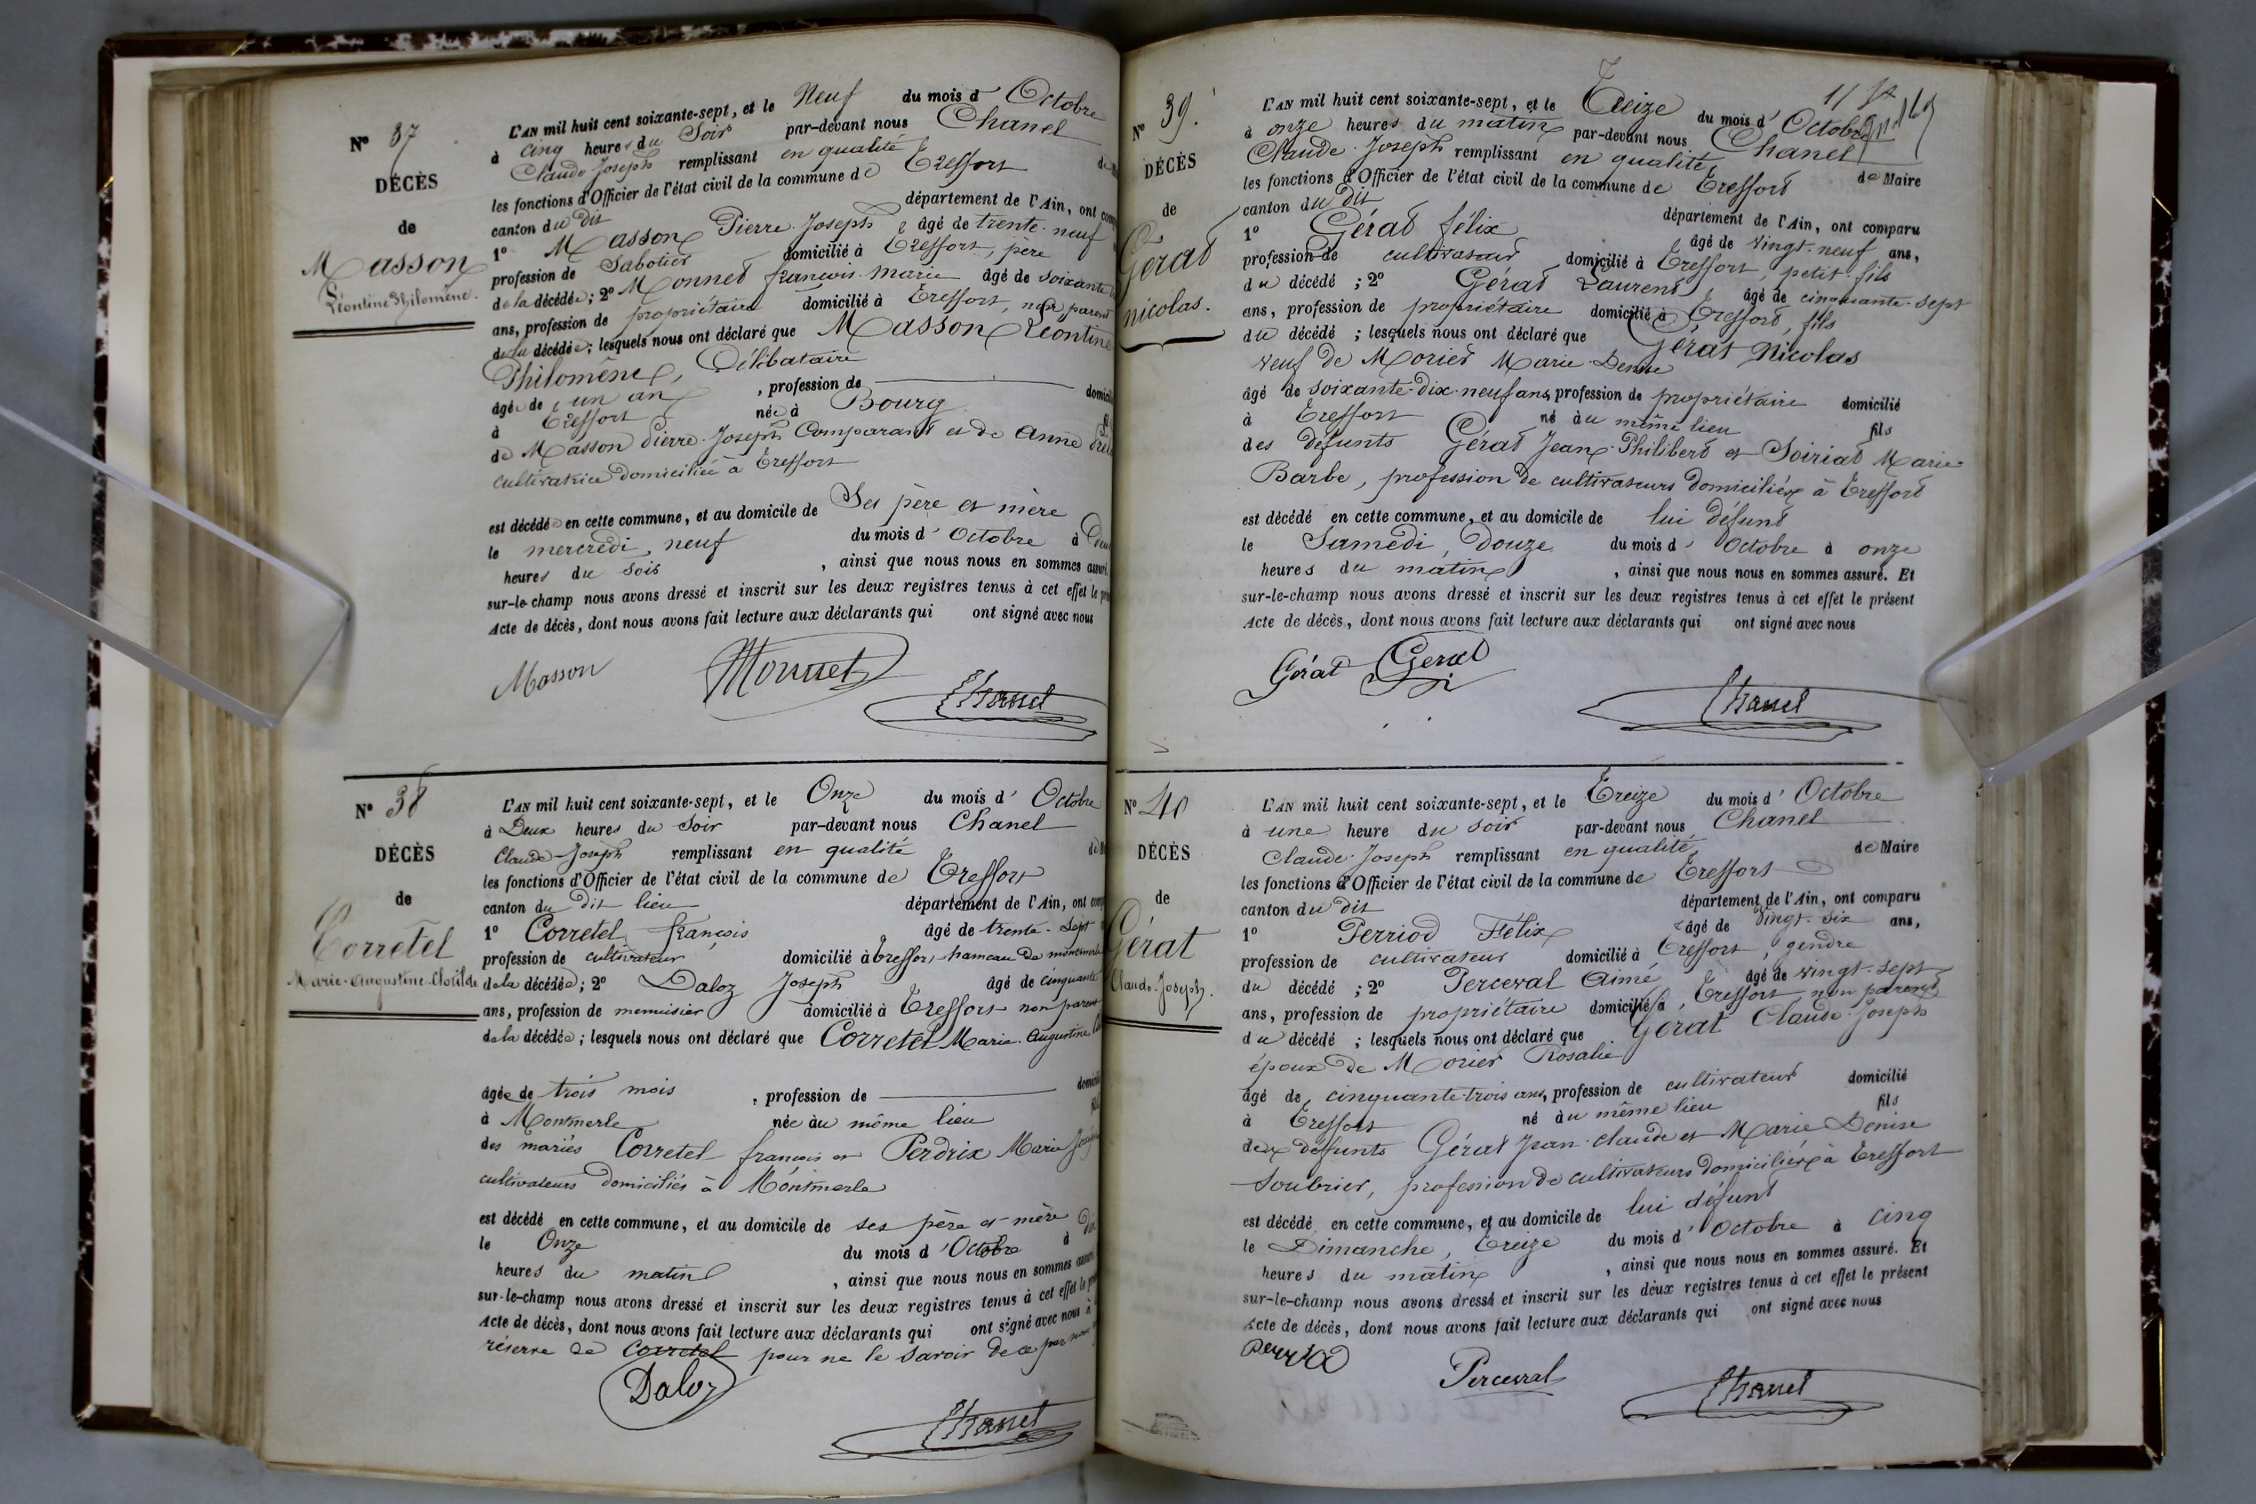 N° 37
DÉCÈS
de
Masson
Léontine Philomène.
L'AN mil huit cent soixante-sept, et le Neuf du mois d' Octobre
à cinq heures du Soir par-devant nous Chanel
Claude Joseph remplissant en qualité de
les fonctions d'Officier de l'état civil de la commune de Treffort
canton du dit département de l'Ain, ont
1° Masson Pierre Joseph âgé de trente-neuf
profession de Sabotier domicilié à Treffort, père
de la décédée; 2° Monnet françois marie âgé de soixante
ans, profession de propriétaire domicilié à Treffort, non parent
de la décédée; lesquels nous ont déclaré que Masson Léontine
Philomène, Célibataire
âgée de un an, profession de
à Treffort née à Bourg
de Masson Pierre-Joseph Comparant et de Anne
cultivatrice domiciliée à Treffort
est décédée en cette commune, et au domicile de Ses père et mère
le mercredi, neuf du mois d' Octobre à
heures du soir, ainsi que nous nous en sommes assuré.
sur-le-champ nous avons dressé et inscrit sur les deux registres tenus à cet effet le
Acte de décès, dont nous avons fait lecture aux déclarants qui ont signé avec nous
Masson Monnet
Chanel
N° 38
DÉCÈS
de
Corretel
Marie-Augustine-Clotilde
L'AN mil huit cent soixante-sept, et le Onze du mois d' Octobre
à Deux heures du Soir par-devant nous Chanel
Claude-Joseph remplissant en qualité de
les fonctions d'Officier de l'état civil de la commune de Treffort
canton du dit lieu département de l'Ain, ont
1° Corretel françois âgé de trente-sept
profession de cultivateur domicilié à treffort hameau de montmerle
de la décédée; 2° Daloz Joseph âgé de cinquante
ans, profession de menuisier domicilié à Treffort non parent
de la décédée; lesquels nous ont déclaré que Corretel Marie-Augustine
âgée de trois mois, profession de
à Montmerle née au même lieu
des mariés Corretel françois et Perdrix Marie
cultivateurs domiciliés à Montmerle
est décédé en cette commune, et au domicile de ses père et mère
le Onze du mois d' Octobre à
heures du matin, ainsi que nous nous en sommes
sur-le-champ nous avons dressé et inscrit sur les deux registres tenus à cet effet le
Acte de décès, dont nous avons fait lecture aux déclarants qui ont signé avec nous à
réserve de Corretel pour ne le savoir de ce par nous
Daloz
Chanel
N° 39.
DÉCÈS
de
Gérat
nicolas.
L'AN mil huit cent soixante-sept, et le Treize du mois d' Octobre
à onze heures du matin par-devant nous Chanel
Claude-Joseph remplissant en qualité de Maire
les fonctions d'Officier de l'état civil de la commune de Treffort
canton du dit département de l'Ain, ont comparu
1° Gérat félix âgé de vingt-neuf ans,
profession de cultivateur domicilié à Treffort, petit-fils
du décédé; 2° Gérat Laurent âgé de cinquante-sept
ans, profession de propriétaire domicilié à Treffort, fils
du décédé; lesquels nous ont déclaré que Gérat Nicolas
veuf de Morier Marie Denise
âgé de soixante-dix-neuf ans, profession de propriétaire domicilié
à Treffort né au même lieu fils
des défunts Gérat Jean-Philibert et Soiriat Marie
Barbe, profession de cultivateurs domiciliés à Treffort
est décédé en cette commune, et au domicile de lui défunt
le Samedi, Douze du mois d' Octobre à onze
heures du matin, ainsi que nous nous en sommes assuré. Et
sur-le-champ nous avons dressé et inscrit sur les deux registres tenus à cet effet le présent
Acte de décès, dont nous avons fait lecture aux déclarants qui ont signé avec nous
Gérat Gerat
Chanel
N° 40
DÉCÈS
de
Gérat
Claude-Joseph.
L'AN mil huit cent soixante-sept, et le Treize du mois d' Octobre
à une heure du soir par-devant nous Chanel
Claude-Joseph remplissant en qualité de Maire
les fonctions d'Officier de l'état civil de la commune de Treffort
canton du dit département de l'Ain, ont comparu
1° Perriod Félix âgé de vingt-six ans,
profession de cultivateur domicilié à Treffort, gendre
du décédé; 2° Perceval Aimé âgé de vingt-sept
ans, profession de propriétaire domicilié à Treffort non parent
du décédé; lesquels nous ont déclaré que Gérat Claude-Joseph
époux de Morier Rosalie
âgé de cinquante-trois ans, profession de cultivateur domicilié
à Treffort né au même lieu fils
des défunts Gérat Jean-claude et Marie Denise
Soubrier, profession de cultivateurs domiciliés à Treffort
est décédé en cette commune, et au domicile de lui défunt
le Dimanche, Treize du mois d' Octobre à cinq
heures du matin, ainsi que nous nous en sommes assuré. Et
sur-le-champ nous avons dressé et inscrit sur les deux registres tenus à cet effet le présent
Acte de décès, dont nous avons fait lecture aux déclarants qui ont signé avec nous
Perriod Perceval
Chanel